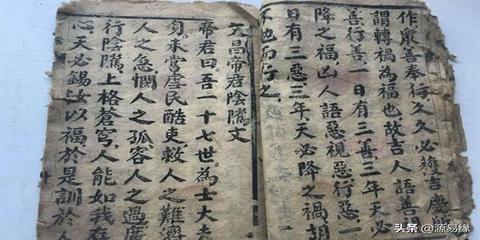 作衆善奉行久久必獲吉慶所
謂轉禍為福也故吉人語善視
善行善一日有三善三年天必
降之福凶人語惡視惡行惡一
日有三惡三年天必降之禍胡
不 而行之
文昌帝君陰騭文
帝君曰吾一十七世為士大
身未嘗虐民酷吏救人之難濟
人之急憫人之孤容人之過廣
行陰騭上格蒼穹人能如我存
心天必錫汝以福於是訓於人
头条 @源易缘